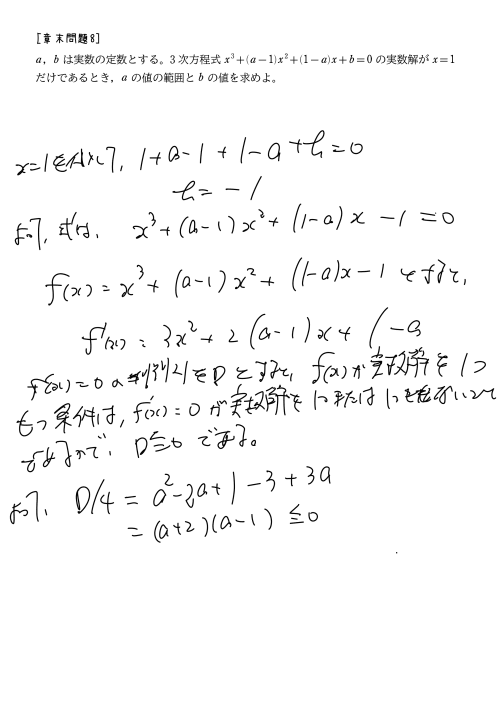 [章末問題8]
a, b は実数の定数とする。3次方程式 x³+(a−1)x²+(1−a)x+b=0 の実数解が x=1
だけであるとき, a の値の範囲と b の値を求めよ。
x=1を代入して, 1+a-1+1-a+b=0
b=-1
よって, 式は, x³+(a-1)x²+(1-a)x-1=0
f(x)=x³+(a-1)x²+(1-a)x-1とすると,
f'(x)=3x²+2(a-1)x+1-a
f'(x)=0の判別式をDとすると, f(x)が実数解を1つ
もつ条件は, f'(x)=0が実数解を1つまたは1つももたないこと
であるので, D≦0である。
よって, D/4=a²-2a+1-3+3a
=(a+2)(a-1)≦0